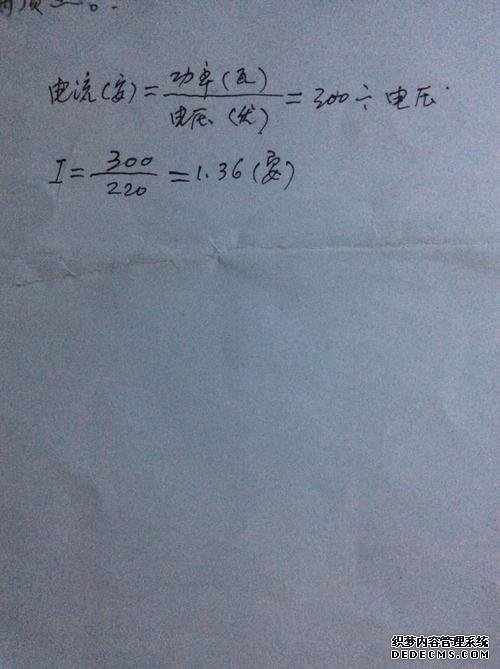 电流(安)=功率(瓦)/电压(伏)=300÷电压
I=300/220=1.36(安)
织梦内容管理系统
DEDECMS.COM